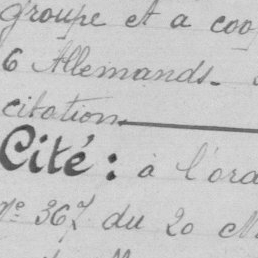 groupe et a coop
6 Allemands.
citation.
Cité : à l'ord
N° 367 du 20 M